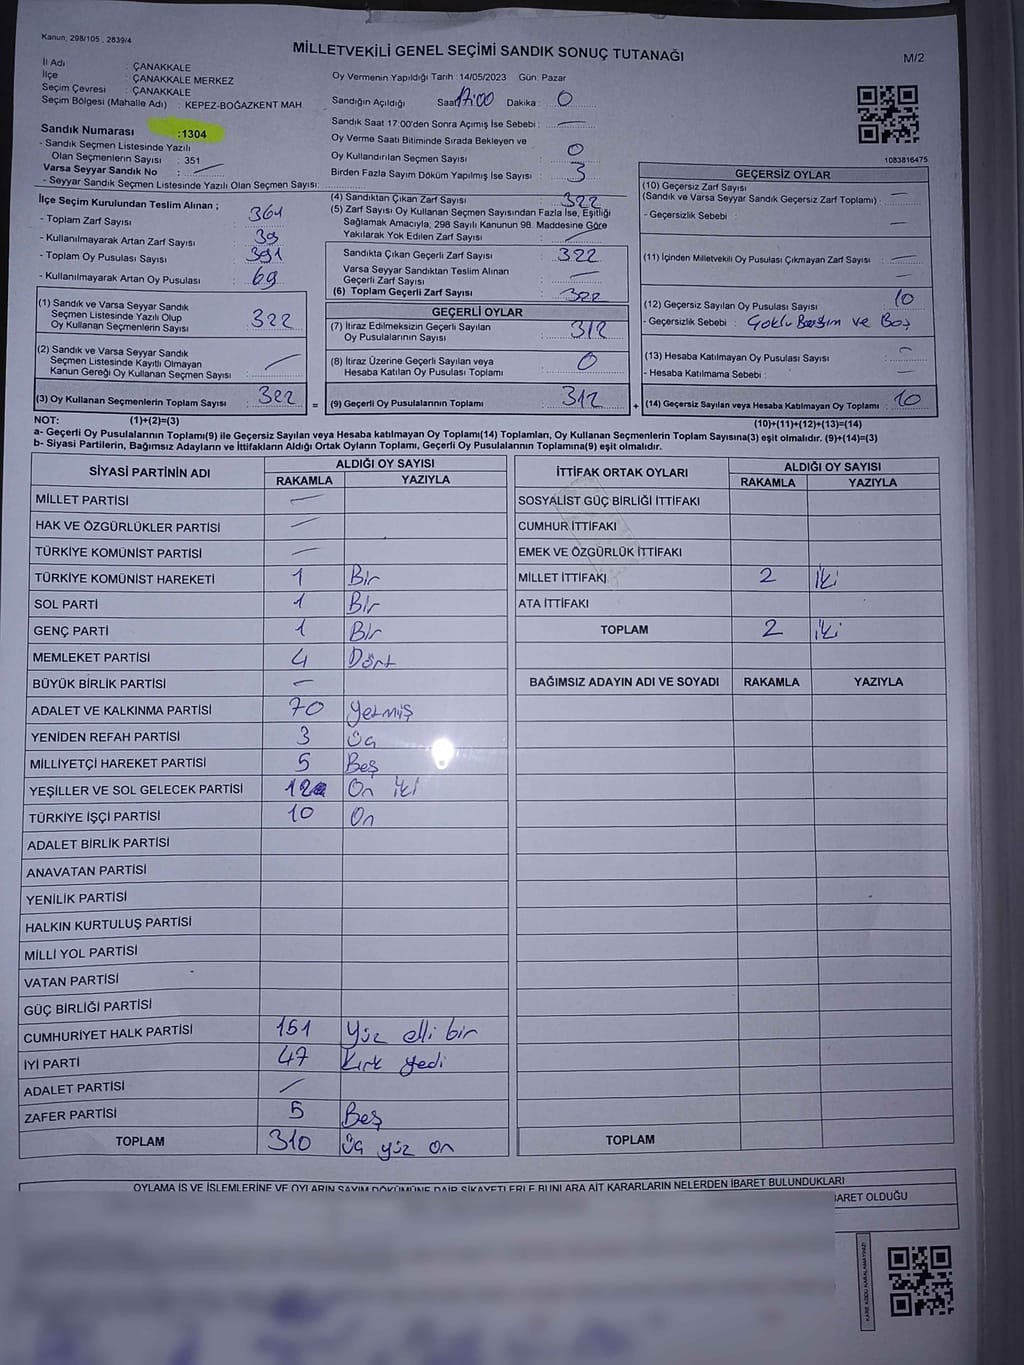 Kanun; 298/105 , 2839/4
MİLLETVEKİLİ GENEL SEÇİMİ SANDIK SONUÇ TUTANAĞI
M/2
İl Adı : ÇANAKKALE
İlçe : ÇANAKKALE MERKEZ
Seçim Çevresi : ÇANAKKALE
Seçim Bölgesi (Mahalle Adı) : KEPEZ-BOĞAZKENT MAH.
Sandık Numarası :1304
- Sandık Seçmen Listesinde Yazılı
Olan Seçmenlerin Sayısı : 351
Varsa Seyyar Sandık No : —
- Seyyar Sandık Seçmen Listesinde Yazılı Olan Seçmen Sayısı:
Oy Vermenin Yapıldığı Tarih :14/05/2023 Gün: Pazar
Sandığın Açıldığı Saat 17:00 Dakika : 0
Sandık Saat 17:00'den Sonra Açımış İse Sebebi : —
Oy Verme Saati Bitiminde Sırada Bekleyen ve
Oy Kullandırılan Seçmen Sayısı : 0
Birden Fazla Sayım Döküm Yapılmış İse Sayısı : 3
1083816475
İlçe Seçim Kurulundan Teslim Alınan ;
- Toplam Zarf Sayısı : 361
- Kullanılmayarak Artan Zarf Sayısı : 39
- Toplam Oy Pusulası Sayısı : 391
- Kullanılmayarak Artan Oy Pusulası : 69
(1) Sandık ve Varsa Seyyar Sandık
Seçmen Listesinde Yazılı Olup
Oy Kullanan Seçmenlerin Sayısı : 322
(2) Sandık ve Varsa Seyyar Sandık
Seçmen Listesinde Kayıtlı Olmayan
Kanun Gereği Oy Kullanan Seçmen Sayısı : —
(3) Oy Kullanan Seçmenlerin Toplam Sayısı : 322
(4) Sandıktan Çıkan Zarf Sayısı : 322
(5) Zarf Sayısı Oy Kullanan Seçmen Sayısından Fazla İse, Eşitliği
Sağlamak Amacıyla, 298 Sayılı Kanunun 98. Maddesine Göre
Yakılarak Yok Edilen Zarf Sayısı : —
Sandıkta Çıkan Geçerli Zarf Sayısı : 322
Varsa Seyyar Sandıktan Teslim Alınan
Geçerli Zarf Sayısı : —
(6) Toplam Geçerli Zarf Sayısı : 322
GEÇERLİ OYLAR
(7) İtiraz Edilmeksizin Geçerli Sayılan
Oy Pusulalarının Sayısı : 312
(8) İtiraz Üzerine Geçerli Sayılan veya
Hesaba Katılan Oy Pusulası Toplamı : 0
= (9) Geçerli Oy Pusulalarının Toplamı : 312
GEÇERSİZ OYLAR
(10) Geçersiz Zarf Sayısı
(Sandık ve Varsa Seyyar Sandık Geçersiz Zarf Toplamı) : —
- Geçersizlik Sebebi : —
(11) İçinden Milletvekili Oy Pusulası Çıkmayan Zarf Sayısı : —
(12) Geçersiz Sayılan Oy Pusulası Sayısı : 10
- Geçersizlik Sebebi : ve Boş
(13) Hesaba Katılmayan Oy Pusulası Sayısı : —
- Hesaba Katılmama Sebebi :
+ (14) Geçersiz Sayılan veya Hesaba Katılmayan Oy Toplamı : 10
NOT: (1)+(2)=(3)
(10)+(11)+(12)+(13)=(14)
a- Geçerli Oy Pusulalarının Toplamı(9) ile Geçersiz Sayılan veya Hesaba katılmayan Oy Toplamı(14) Toplamları, Oy Kullanan Seçmenlerin Toplam Sayısına(3) eşit olmalıdır. (9)+(14)=(3)
b- Siyasi Partilerin, Bağımsız Adayların ve İttifakların Aldığı Ortak Oyların Toplamı, Geçerli Oy Pusulalarının Toplamına(9) eşit olmalıdır.
SİYASİ PARTİNİN ADI ALDIĞI OY SAYISI
RAKAMLA YAZIYLA
MİLLET PARTİSİ —
HAK VE ÖZGÜRLÜKLER PARTİSİ —
TÜRKİYE KOMÜNİST PARTİSİ —
TÜRKİYE KOMÜNİST HAREKETİ 1 Bir
SOL PARTİ 1 Bir
GENÇ PARTİ 1 Bir
MEMLEKET PARTİSİ 4 Dört
BÜYÜK BİRLİK PARTİSİ —
ADALET VE KALKINMA PARTİSİ 70 Yetmiş
YENİDEN REFAH PARTİSİ 3 Üç
MİLLİYETÇİ HAREKET PARTİSİ 5 Beş
YEŞİLLER VE SOL GELECEK PARTİSİ 12 On iki
TÜRKİYE İŞÇİ PARTİSİ 10 On
ADALET BİRLİK PARTİSİ
ANAVATAN PARTİSİ
YENİLİK PARTİSİ
HALKIN KURTULUŞ PARTİSİ
MİLLİ YOL PARTİSİ
VATAN PARTİSİ
GÜÇ BİRLİĞİ PARTİSİ
CUMHURİYET HALK PARTİSİ 151 Yüz elli bir
İYİ PARTİ 47 Kırk yedi
ADALET PARTİSİ —
ZAFER PARTİSİ 5 Beş
TOPLAM 310 Üç yüz on
İTTİFAK ORTAK OYLARI ALDIĞI OY SAYISI
RAKAMLA YAZIYLA
SOSYALİST GÜÇ BİRLİĞİ İTTİFAKI
CUMHUR İTTİFAKI
EMEK VE ÖZGÜRLÜK İTTİFAKI
MİLLET İTTİFAKI 2 İki
ATA İTTİFAKI
TOPLAM 2 İki
BAĞIMSIZ ADAYIN ADI VE SOYADI RAKAMLA YAZIYLA
TOPLAM
OYLAMA İŞ VE İŞLEMLERİNE VE OYLARIN SAYIM DÖKÜMÜNE DAİR ŞİKAYETLERLE BUNLARA AİT KARARLARIN NELERDEN İBARET BULUNDUKLARI
BARET OLDUĞU
KARE KODU KARALAMAYINIZ!